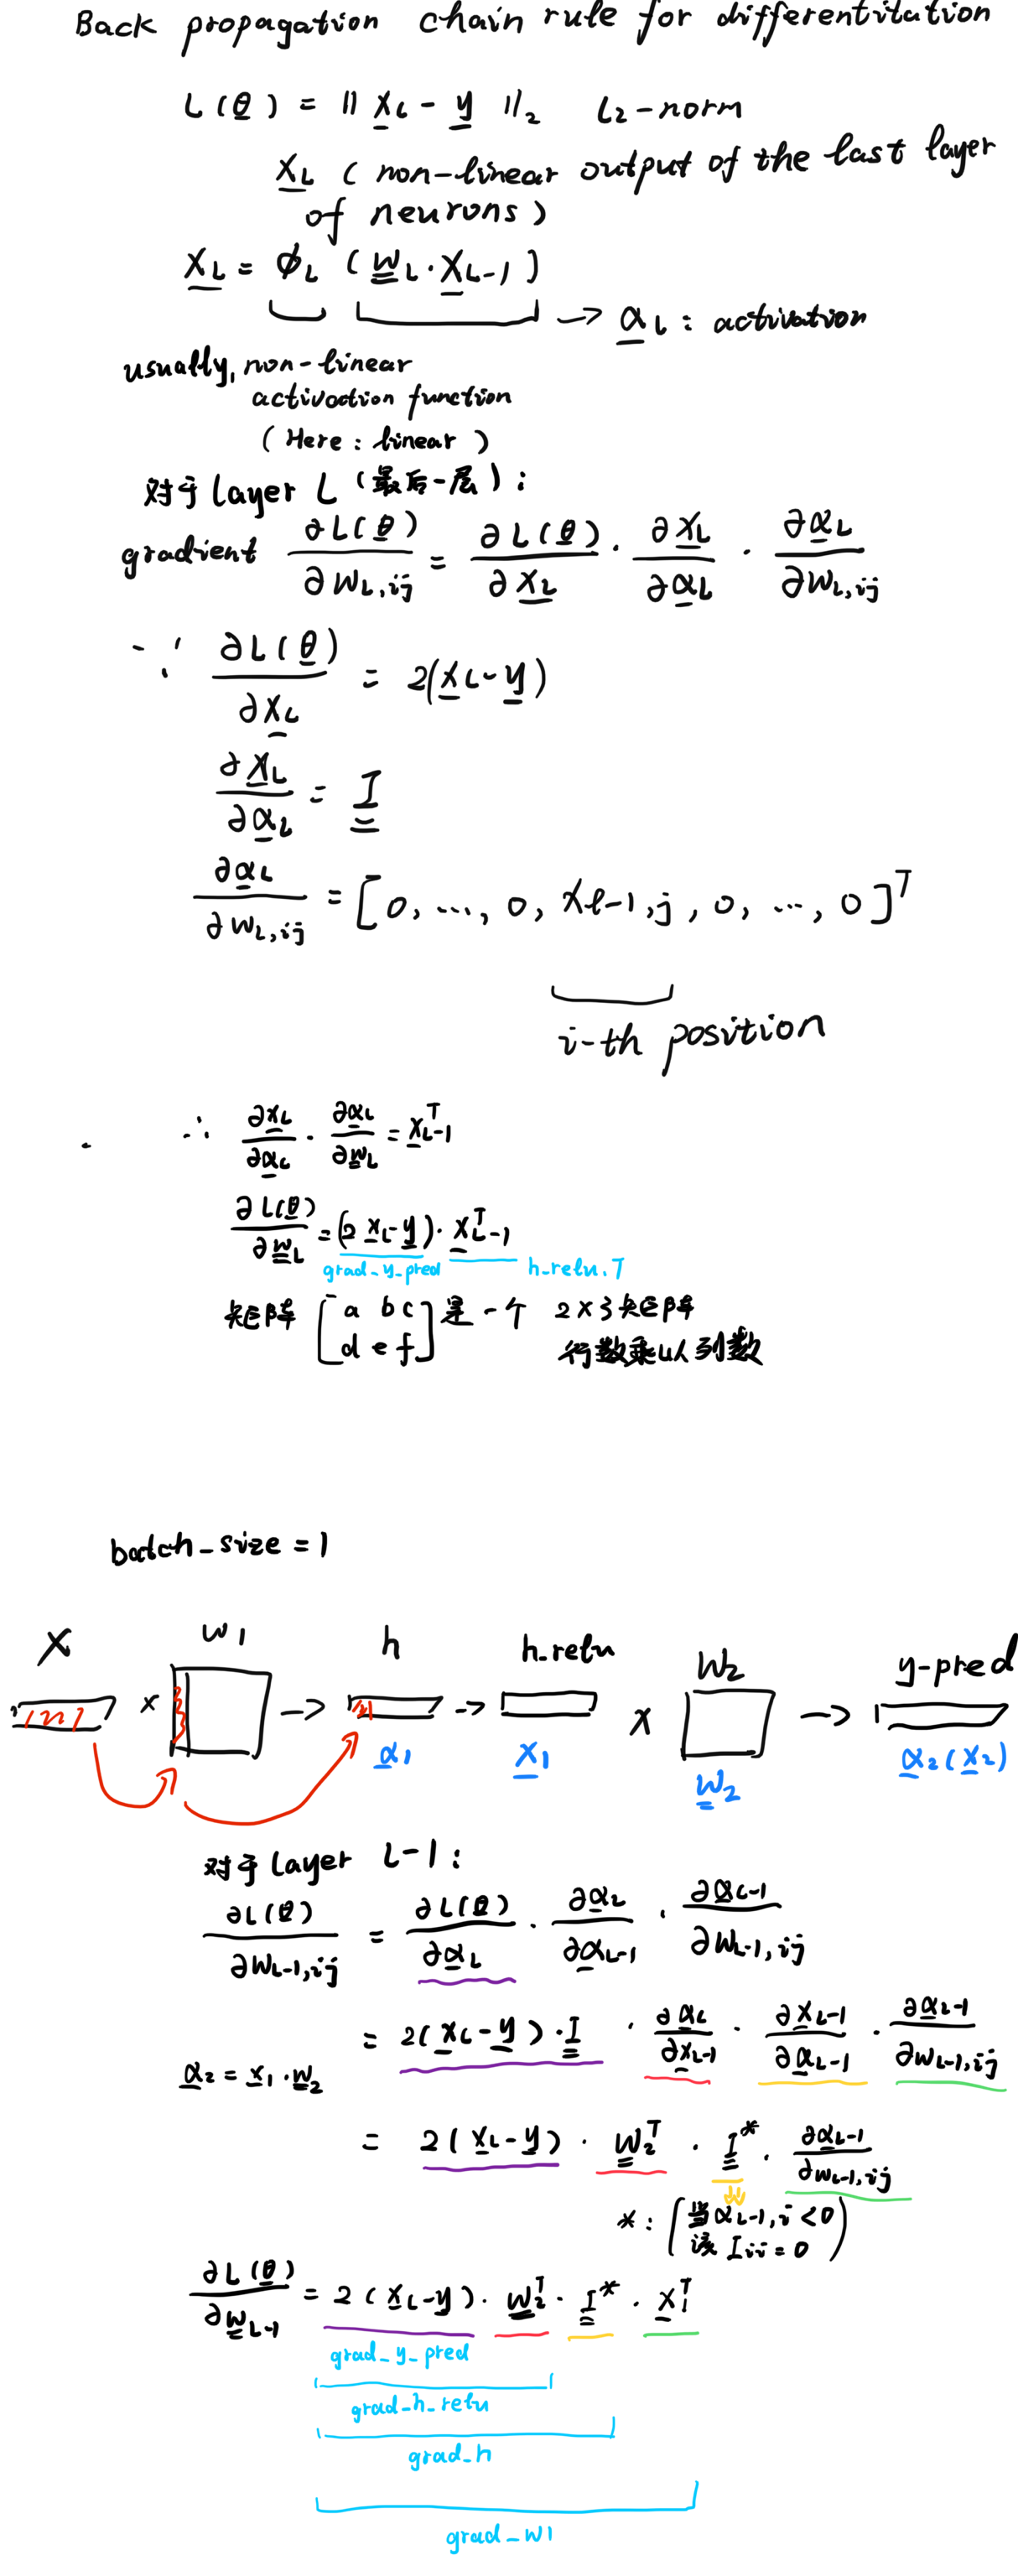 Back propagation chain rule for differentitation
L(θ) = || x_L - y ||_2 L2-norm
x_L ( non-linear output of the last layer
of neurons )
x_L = ϕ_L ( w_L · x_{L-1} )
→ α_L : activation
usually, non-linear
activation function
( Here : linear )
对于 layer L (最后一层) :
gradient ∂L(θ)/∂w_{L,ij} = ∂L(θ)/∂x_L · ∂x_L/∂α_L · ∂α_L/∂w_{L,ij}
∵ ∂L(θ)/∂x_L = 2(x_L - y)
∂x_L/∂α_L = I
∂α_L/∂w_{L,ij} = [0, ..., 0, x_{l-1,j}, 0, ..., 0]^T
i-th position
∴ ∂x_L/∂α_L · ∂α_L/∂w_L = x_{L-1}^T
∂L(θ)/∂w_L = (2 x_L - y) · x_{L-1}^T
grad_y_pred h_relu.T
矩阵 [a b c
d e f] 是一个 2×3 矩阵
行数乘以列数
batch_size = 1
x w1 h h_relu w2 y-pred
x → → x →
α1 x1 w2 α2(x2)
对于 layer L-1 :
∂L(θ)/∂w_{L-1,ij} = ∂L(θ)/∂α_L · ∂α_L/∂α_{L-1} · ∂α_{L-1}/∂w_{L-1,ij}
= 2(x_L - y) · I · ∂α_L/∂x_{L-1} · ∂x_{L-1}/∂α_{L-1} · ∂α_{L-1}/∂w_{L-1,ij}
α2 = x1 · w2
= 2(x_L - y) · w_2^T · I^* · ∂α_{L-1}/∂w_{L-1,ij}
* : (当 α_{L-1,i} < 0
该 I_ii = 0)
∂L(θ)/∂w_{L-1} = 2(x_L - y) · w_2^T · I^* · x_1^T
grad_y_pred
grad_h_relu
grad_h
grad_w1